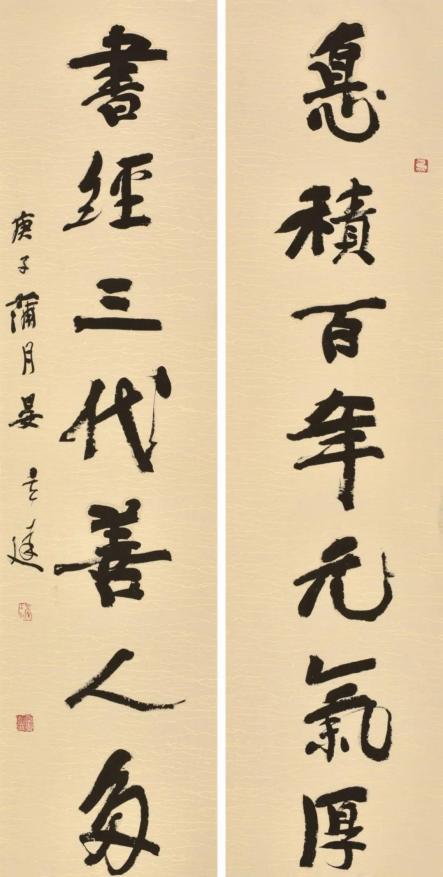 悳積百年元氣厚
書經三代善人多
庚子蒲月晏